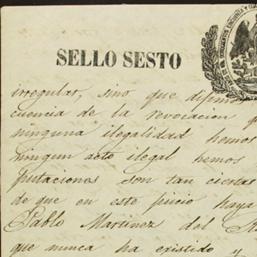 SELLO SESTO
irregular, sino que
cuencia de la revocacion
ninguna ilegalidad hemos
ningun acto ilegal hemos
putaciones son tan ciertas
de que en este juicio haya
Pablo Martinez del
que nunca ha existido y